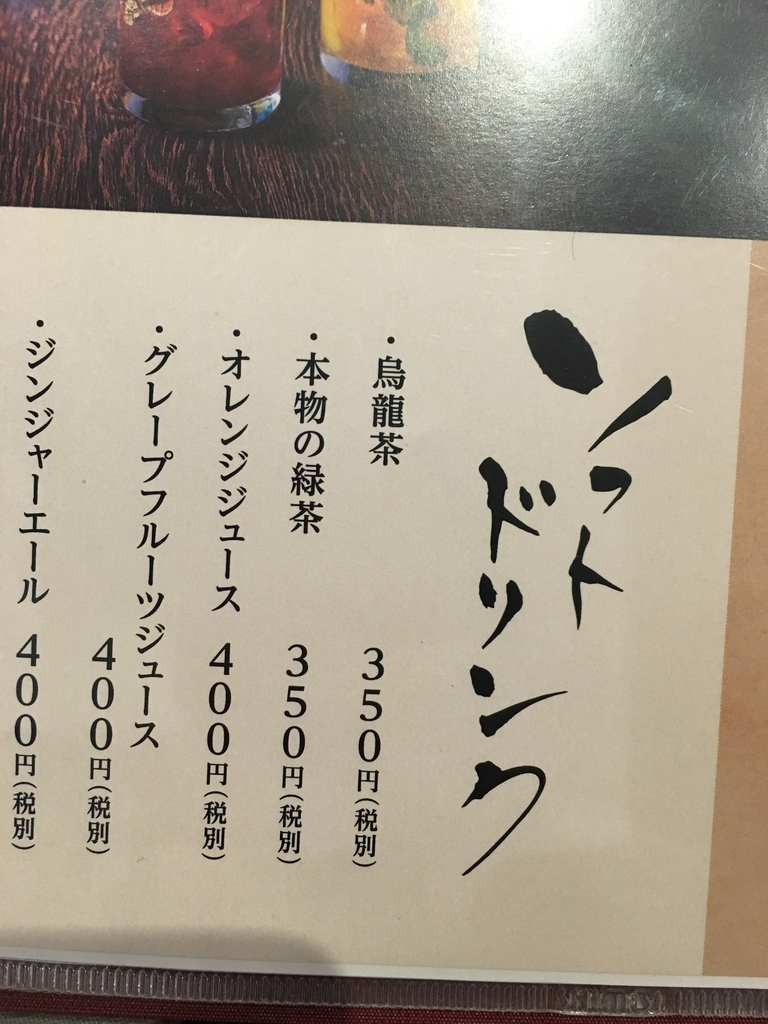 ソフト
ドリンク
・烏龍茶 350円(税別)
・本物の緑茶 350円(税別)
・オレンジジュース 400円(税別)
・グレープフルーツジュース
400円(税別)
・ジンジャーエール 400円(税別)